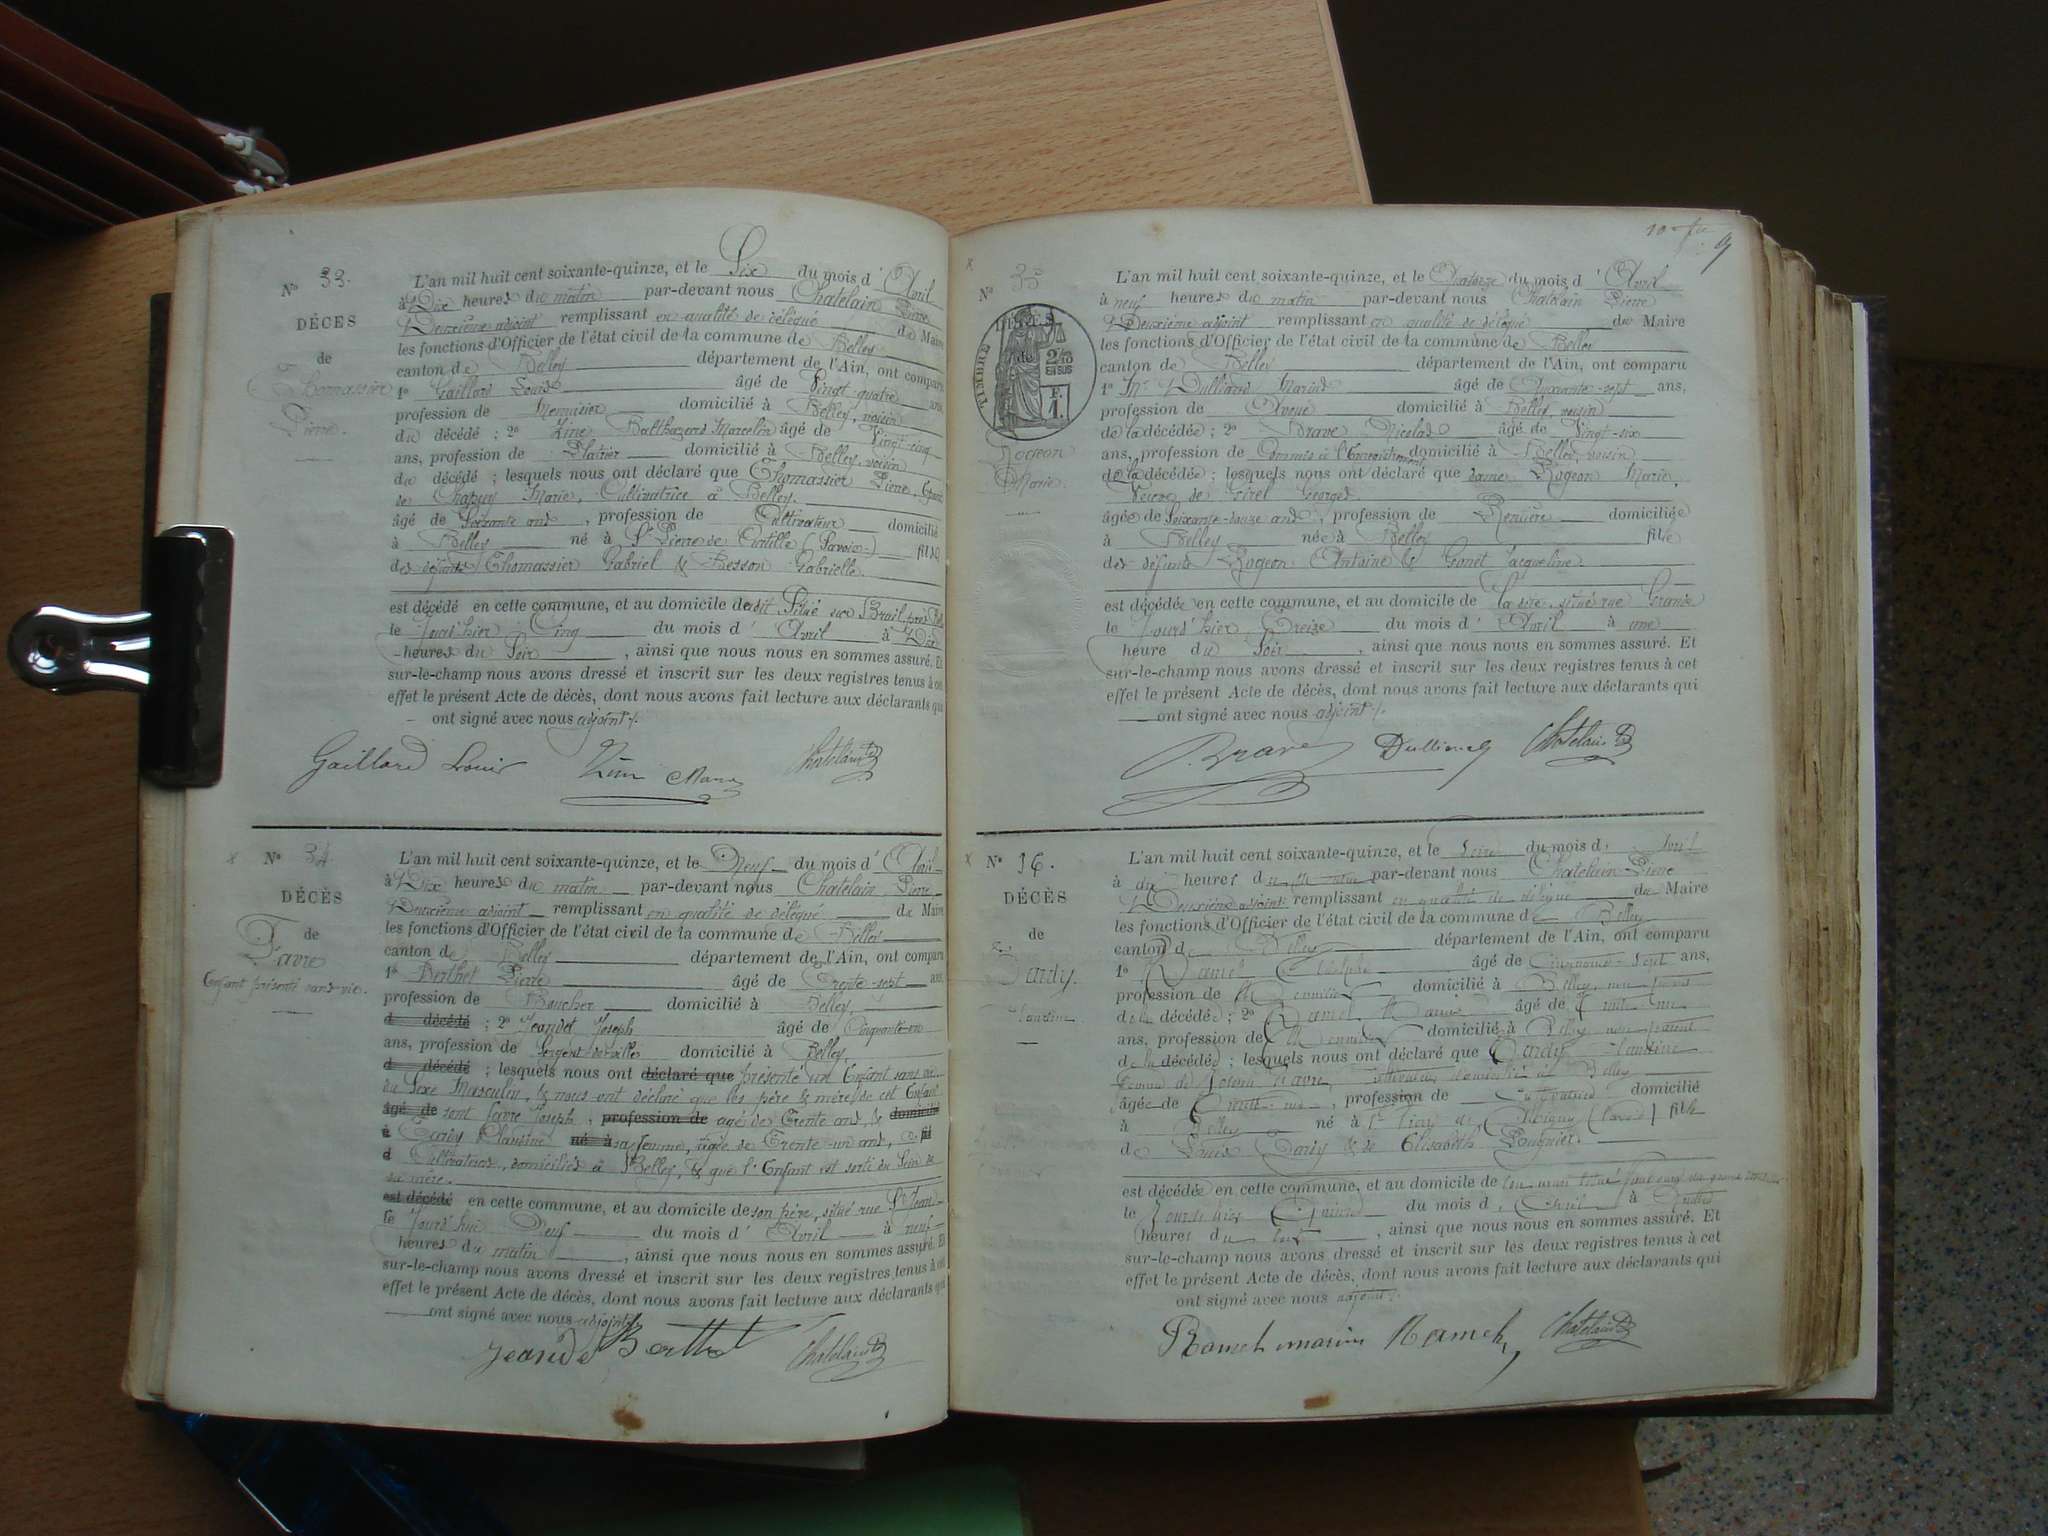 N° 33.
DÉCES
de
Thomassier
Pierre.
L'an mil huit cent soixante-quinze, et le Six du mois d'Avril
à Dix heures du matin par-devant nous Chatelain Pierre
Deuxième adjoint remplissant en qualité de délégué du Maire
les fonctions d'Officier de l'état civil de la commune de Belley
canton de Belley département de l'Ain, ont comparu
1° Gaillard Louis âgé de Vingt quatre ans,
profession de Menuisier domicilié à Belley, voisin
du décédé ; 2° Balthazard Marcelin âgé de Vingt-cinq
ans, profession de Platrier domicilié à Belley, voisin
du décédé ; lesquels nous ont déclaré que Thomassier Pierre,
de Chapuy Marie, Cultivatrice à Belley.
âgé de Soixante ans, profession de Cultivateur domicilié
à Belley né à St Pierre de Curtille (Savoie) fils
des défunts Thomassier Gabriel & Besson Gabrielle.
est décédé en cette commune, et au domicile de Situé sur Brail, près
le Jourd'hier Cinq du mois d'Avril à Dix
heures du Soir, ainsi que nous nous en sommes assuré. Et
sur-le-champ nous avons dressé et inscrit sur les deux registres tenus à cet
effet le présent Acte de décès, dont nous avons fait lecture aux déclarants qui
ont signé avec nous adjoint ./.
Gaillard Louis Chatelain
N° 34.
DÉCÈS
de
Favre
Enfant présenté sans vie.
L'an mil huit cent soixante-quinze, et le Neuf du mois d'Avril
à Dix heures du matin par-devant nous Chatelain Pierre
Deuxième adjoint remplissant en qualité de délégué du Maire
les fonctions d'Officier de l'état civil de la commune de Belley
canton de Belley département de l'Ain, ont comparu
1° Berthet Pierre âgé de Trente-sept ans,
profession de Boucher domicilié à Belley,
d décédé ; 2° Jeandet Joseph âgé de Cinquante-un
ans, profession de Sergent de ville domicilié à Belley,
d décédé ; lesquels nous ont déclaré que présenté un Enfant sans vie
du Sexe Masculin, & nous ont déclaré que les père & mère de cet Enfant
âgé de sont Favre Joseph, profession de agé de Trente ans, & domicilié
à Tardy Claudine né à sa femme, agée de Trente-un ans, fil
d Cultivateurs, domiciliés à Belley, & que l'Enfant est sorti du Sein de
sa mère.
est décédé en cette commune, et au domicile de son père, situé rue St Jean
le Jourd'hui Neuf du mois d'Avril à neuf
heures du matin, ainsi que nous nous en sommes assuré. Et
sur-le-champ nous avons dressé et inscrit sur les deux registres tenus à cet
effet le présent Acte de décès, dont nous avons fait lecture aux déclarants qui
ont signé avec nous adjoint
Jeandet Berthet Chatelain
N° 35
TIMBRE
2/10
EN SUS
F.
1.
Rogeon
Marie.
L'an mil huit cent soixante-quinze, et le Quatorze du mois d'Avril
à neuf heures du matin par-devant nous Chatelain Pierre
Deuxième adjoint remplissant en qualité de délégué du Maire
les fonctions d'Officier de l'état civil de la commune de Belley
canton de Belley département de l'Ain, ont comparu
1° Mr Dulliand Marius âgé de Quarante-sept ans,
profession de Avoué domicilié à Belley, voisin
de la décédée ; 2° Brave Nicolas âgé de Vingt-six
ans, profession de Commis à l'Enregistrement domicilié à Belley, voisin
de la décédée ; lesquels nous ont déclaré que dame Rogeon Marie,
Veuve de Georges.
âgée de Soixante-douze ans, profession de Rentière domiciliée
à Belley née à Belley fille
des défunts Rogeon Antoine & Jacqueline.
est décédée en cette commune, et au domicile de situé rue Grande
le Jourd'hier Treize du mois d'Avril à une
heure du Soir, ainsi que nous nous en sommes assuré. Et
sur-le-champ nous avons dressé et inscrit sur les deux registres tenus à cet
effet le présent Acte de décès, dont nous avons fait lecture aux déclarants qui
ont signé avec nous adjoint ./.
Brave Dulliand Chatelain
N° 36.
DÉCÈS
de
Tardy
Claudine
L'an mil huit cent soixante-quinze, et le Seize du mois d'Avril
à dix heures du matin par-devant nous Chatelain Pierre
Deuxième adjoint remplissant en qualité de délégué du Maire
les fonctions d'Officier de l'état civil de la commune de Belley
canton de Belley département de l'Ain, ont comparu
1° Ramel âgé de Cinquante-sept ans,
profession de Menuisier domicilié à Belley, non parent
de la décédée ; 2° Ramel Marius âgé de
ans, profession de Menuisier domicilié à Belley non parent
de la décédée ; lesquels nous ont déclaré que Tardy Claudine
femme de Joseph Favre, domicilié à Belley
âgée de Trente-un, profession de domicilié
à Belley né à fille
de Louis Tardy & de Elisabeth
est décédée en cette commune, et au domicile de son mari situé
le Jourd'hier Quinze du mois d'Avril à
heures du soir, ainsi que nous nous en sommes assuré. Et
sur-le-champ nous avons dressé et inscrit sur les deux registres tenus à cet
effet le présent Acte de décès, dont nous avons fait lecture aux déclarants qui
ont signé avec nous adjoint ./.
Ramel marius Ramel Chatelain